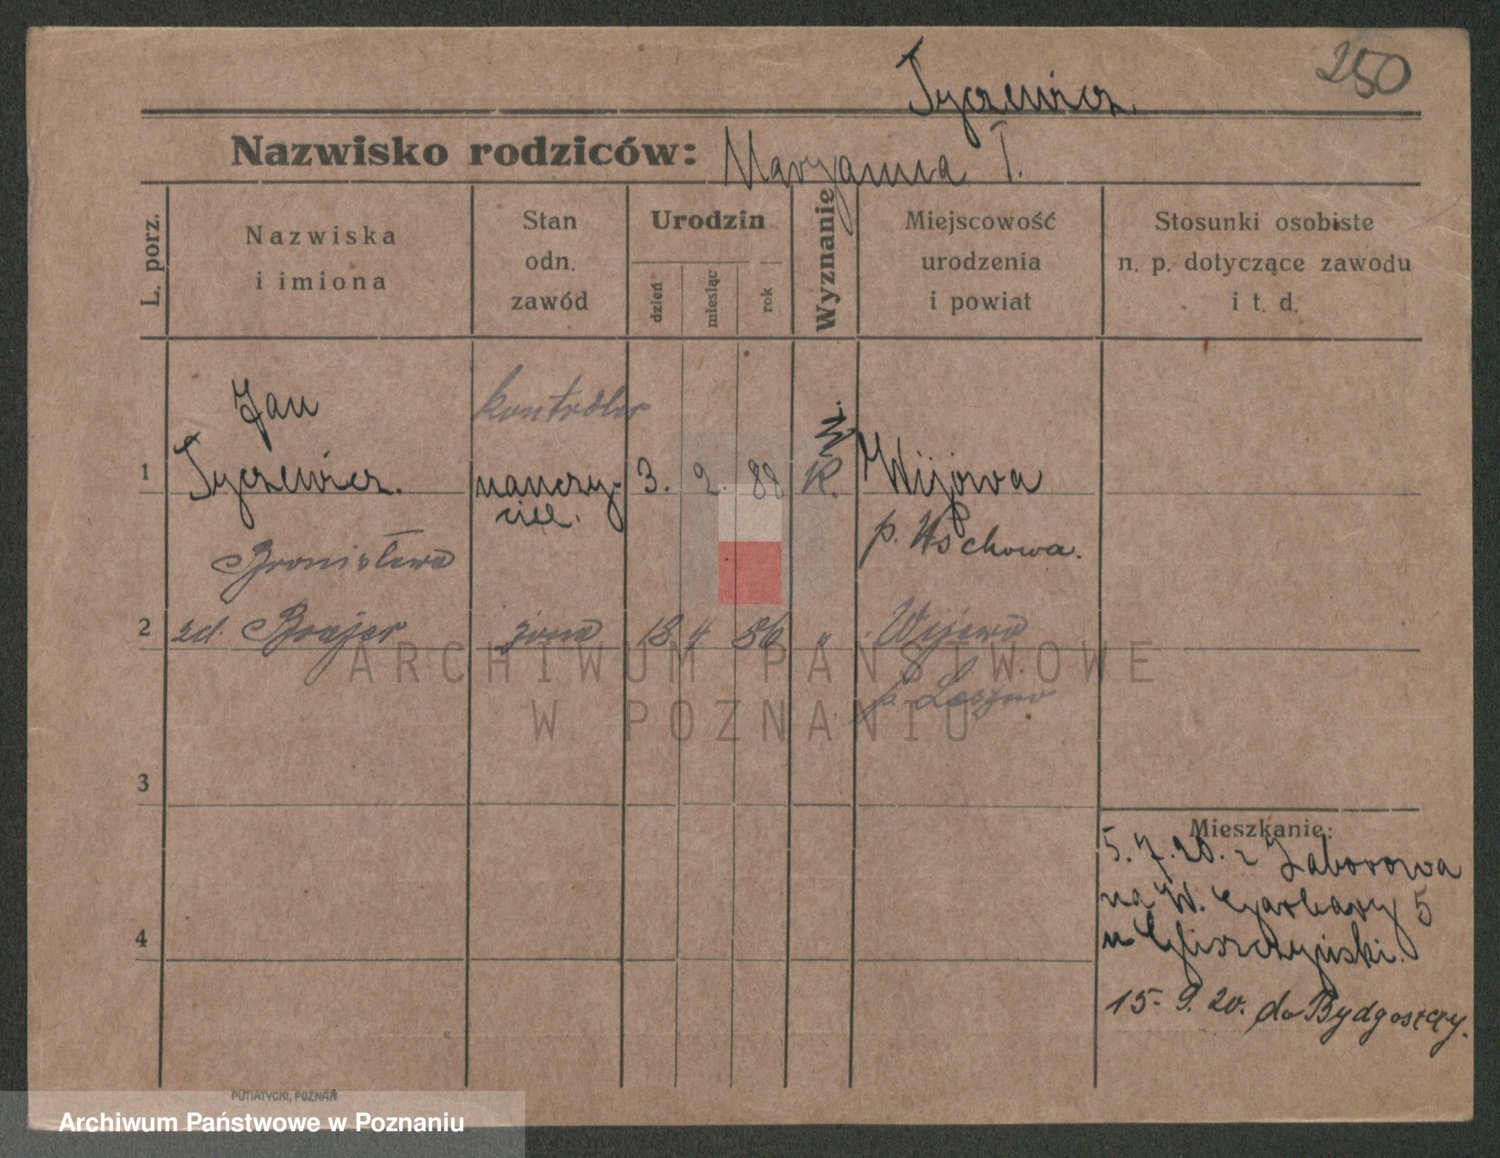 250
Tyczewicz.
Nazwisko rodziców: Maryanna T.
L. porz.
Nazwiska
i imiona
Stan
odn.
zawód
Urodzin
dzień
miesiąc
rok
Wyznanie
Miejscowość
urodzenia
i powiat
Stosunki osobiste
n. p. dotyczące zawodu
i t. d.
Jan
kontroler
1 Tyczewicz. nauczy- 3. 2. 82 K. Wijowa
ciel.
p. Wschowa.
Bronisława
2 zd. Brajer żona 18 4 86 „ Wijewo
p. Leszno
ARCHIWUM PAŃSTWOWE
W POZNANIU
3
4
Mieszkanie:
5. 7. 20. z Zaborowa
na W. Garbary 5
u Gliszczyński.
15. 9. 20. do Bydgoszczy.
PUTIATYCKI, POZNAŃ
Archiwum Państwowe w Poznaniu